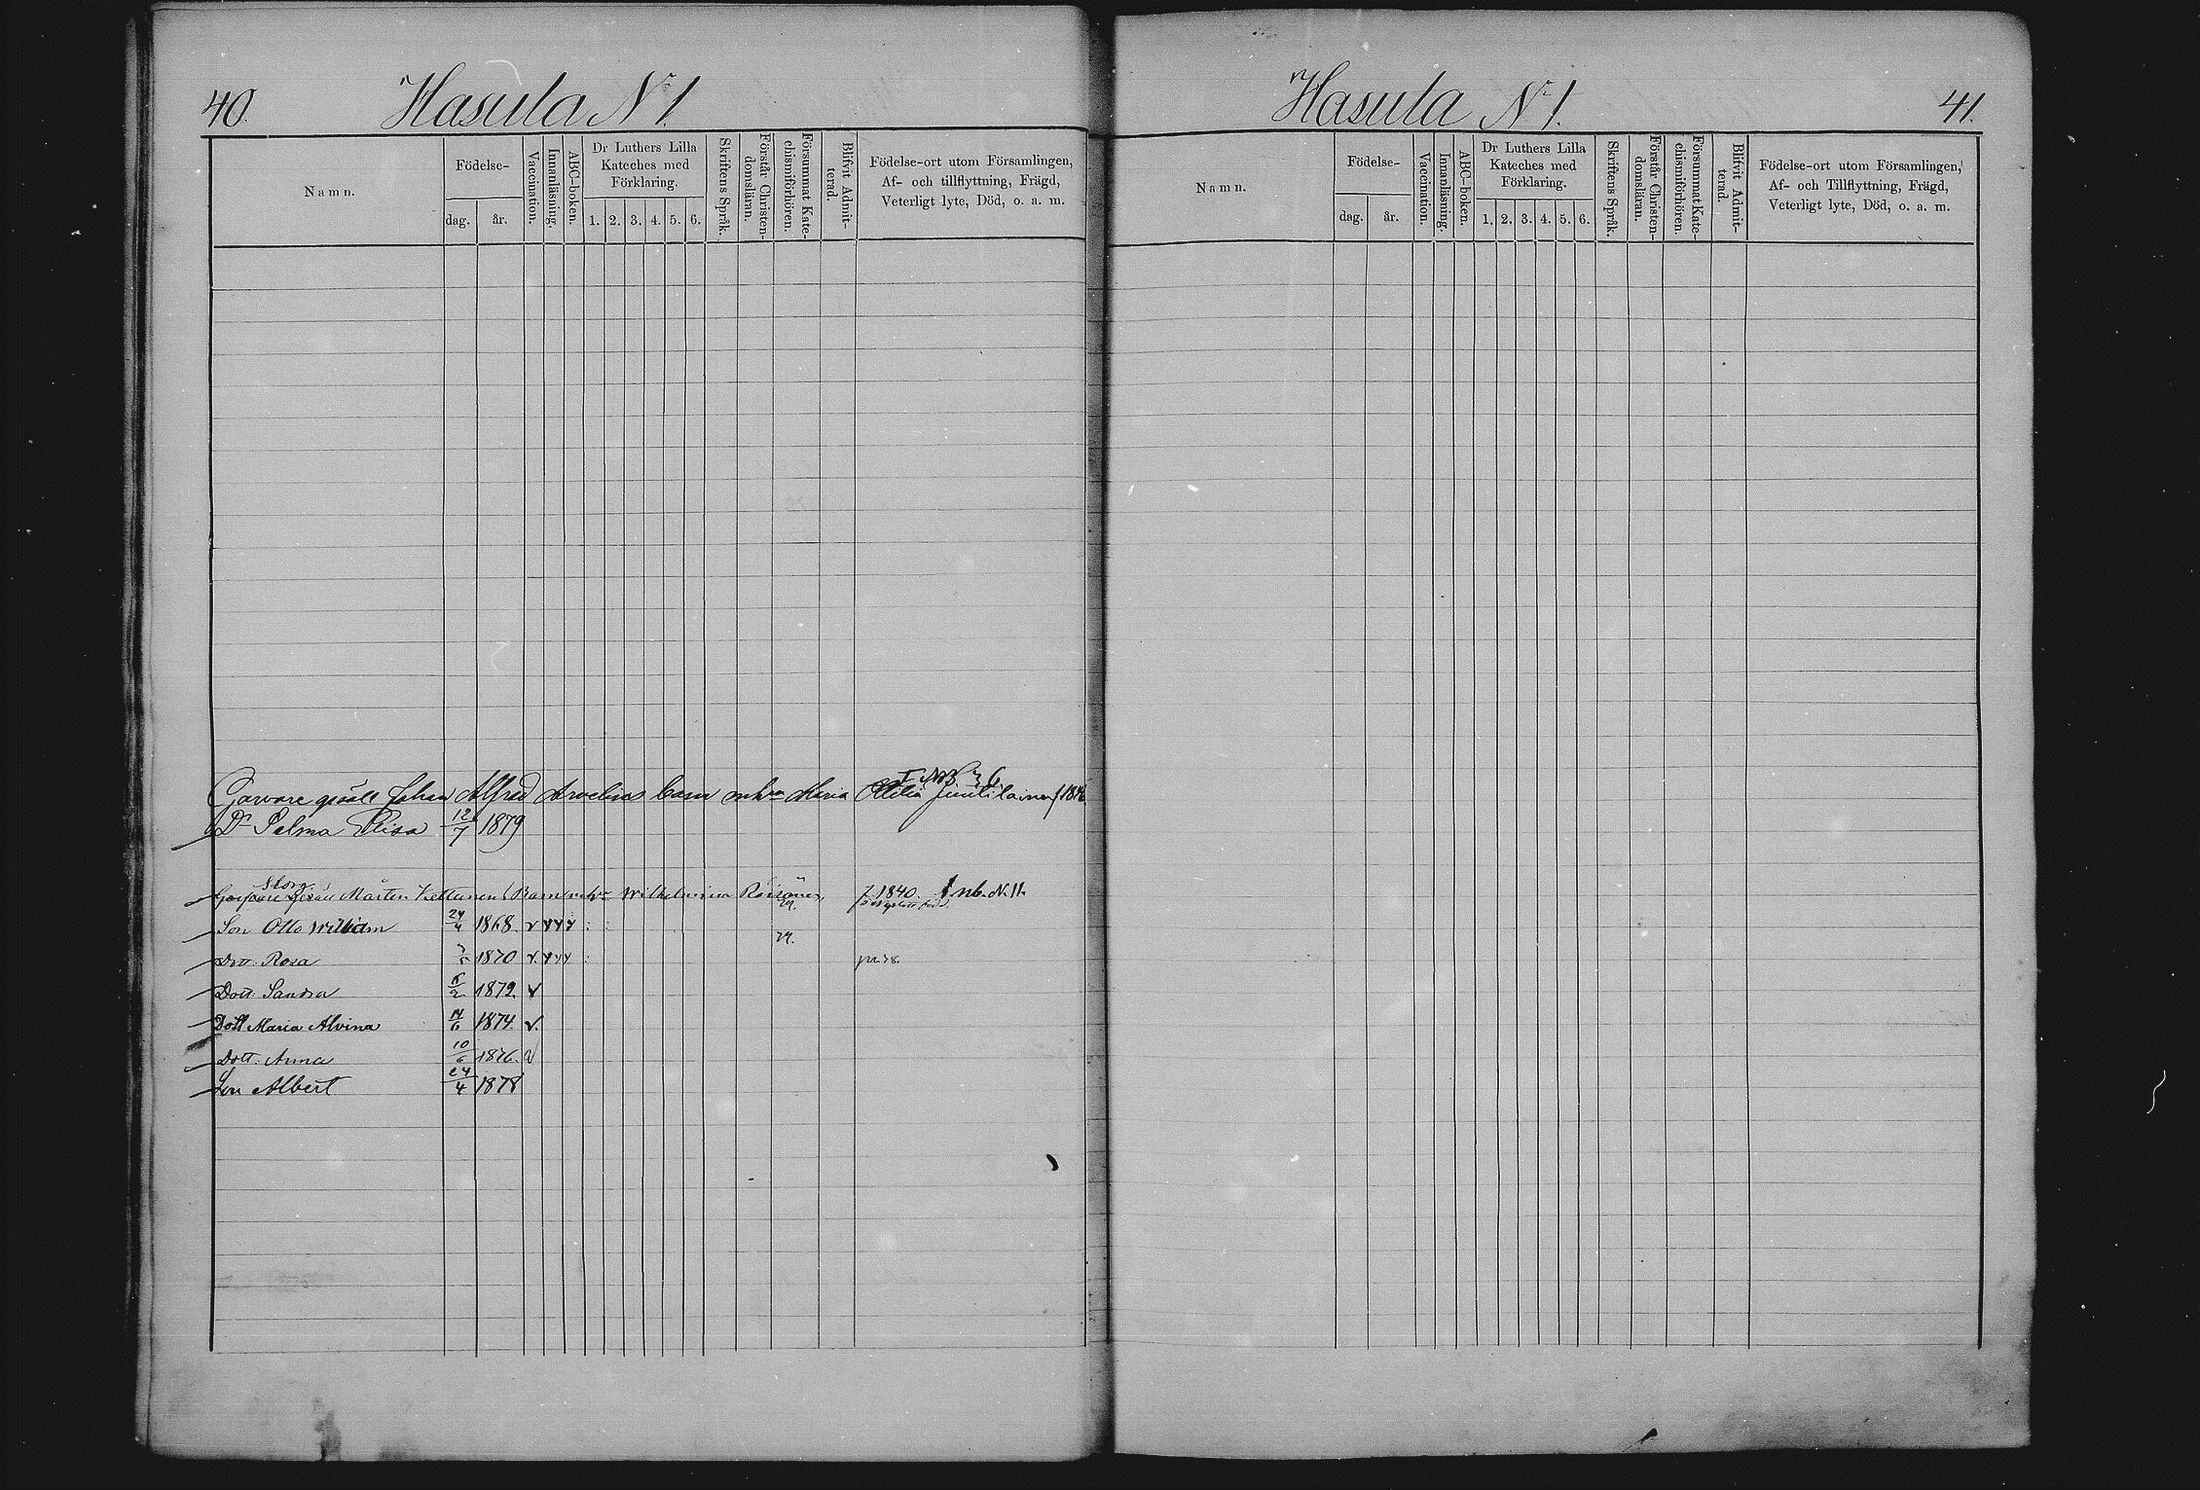 40.
Hasula N:r 1.
Namn.
Födelse-
dag.
år.
Vaccination.
Innanläsning.
ABC-boken.
Dr Luthers Lilla
Kateches med
Förklaring.
1. 2. 3. 4. 5. 6.
Skriftens Språk.
Förstår Christen-
domsläran.
Försummat Kate-
chismiförhören.
Blifvit Admit-
terad.
Födelse-ort utom Församlingen,
Af- och tillflyttning, Frägd,
Veterligt lyte, Död, o. a. m.
Johan Alfred Arvelius barn Maria Ottilia
D:r Selma Elisa 12/7 1879
Mårten Kettunens Barn Wilhelmina Räisänen, f. 1840. nb. N. 11.
Son Otto William 24/4 1868
Dott: Rosa 1870
Dott: Sandra 1872.
Dott Maria Alvina 1874.
Dott: Anna 10/6 1876.
Son Albert 24/4 1878
Hasula N:r 1.
41.
Namn.
Födelse-
dag.
år.
Vaccination.
Innanläsning.
ABC-boken.
Dr Luthers Lilla
Kateches med
Förklaring.
1. 2. 3. 4. 5. 6.
Skriftens Språk.
Förstår Christen-
domsläran.
Försummat Kate-
chismiförhören.
Blifvit Admit-
terad.
Födelse-ort utom Församlingen,
Af- och Tillflyttning, Frägd,
Veterligt lyte, Död, o. a. m.